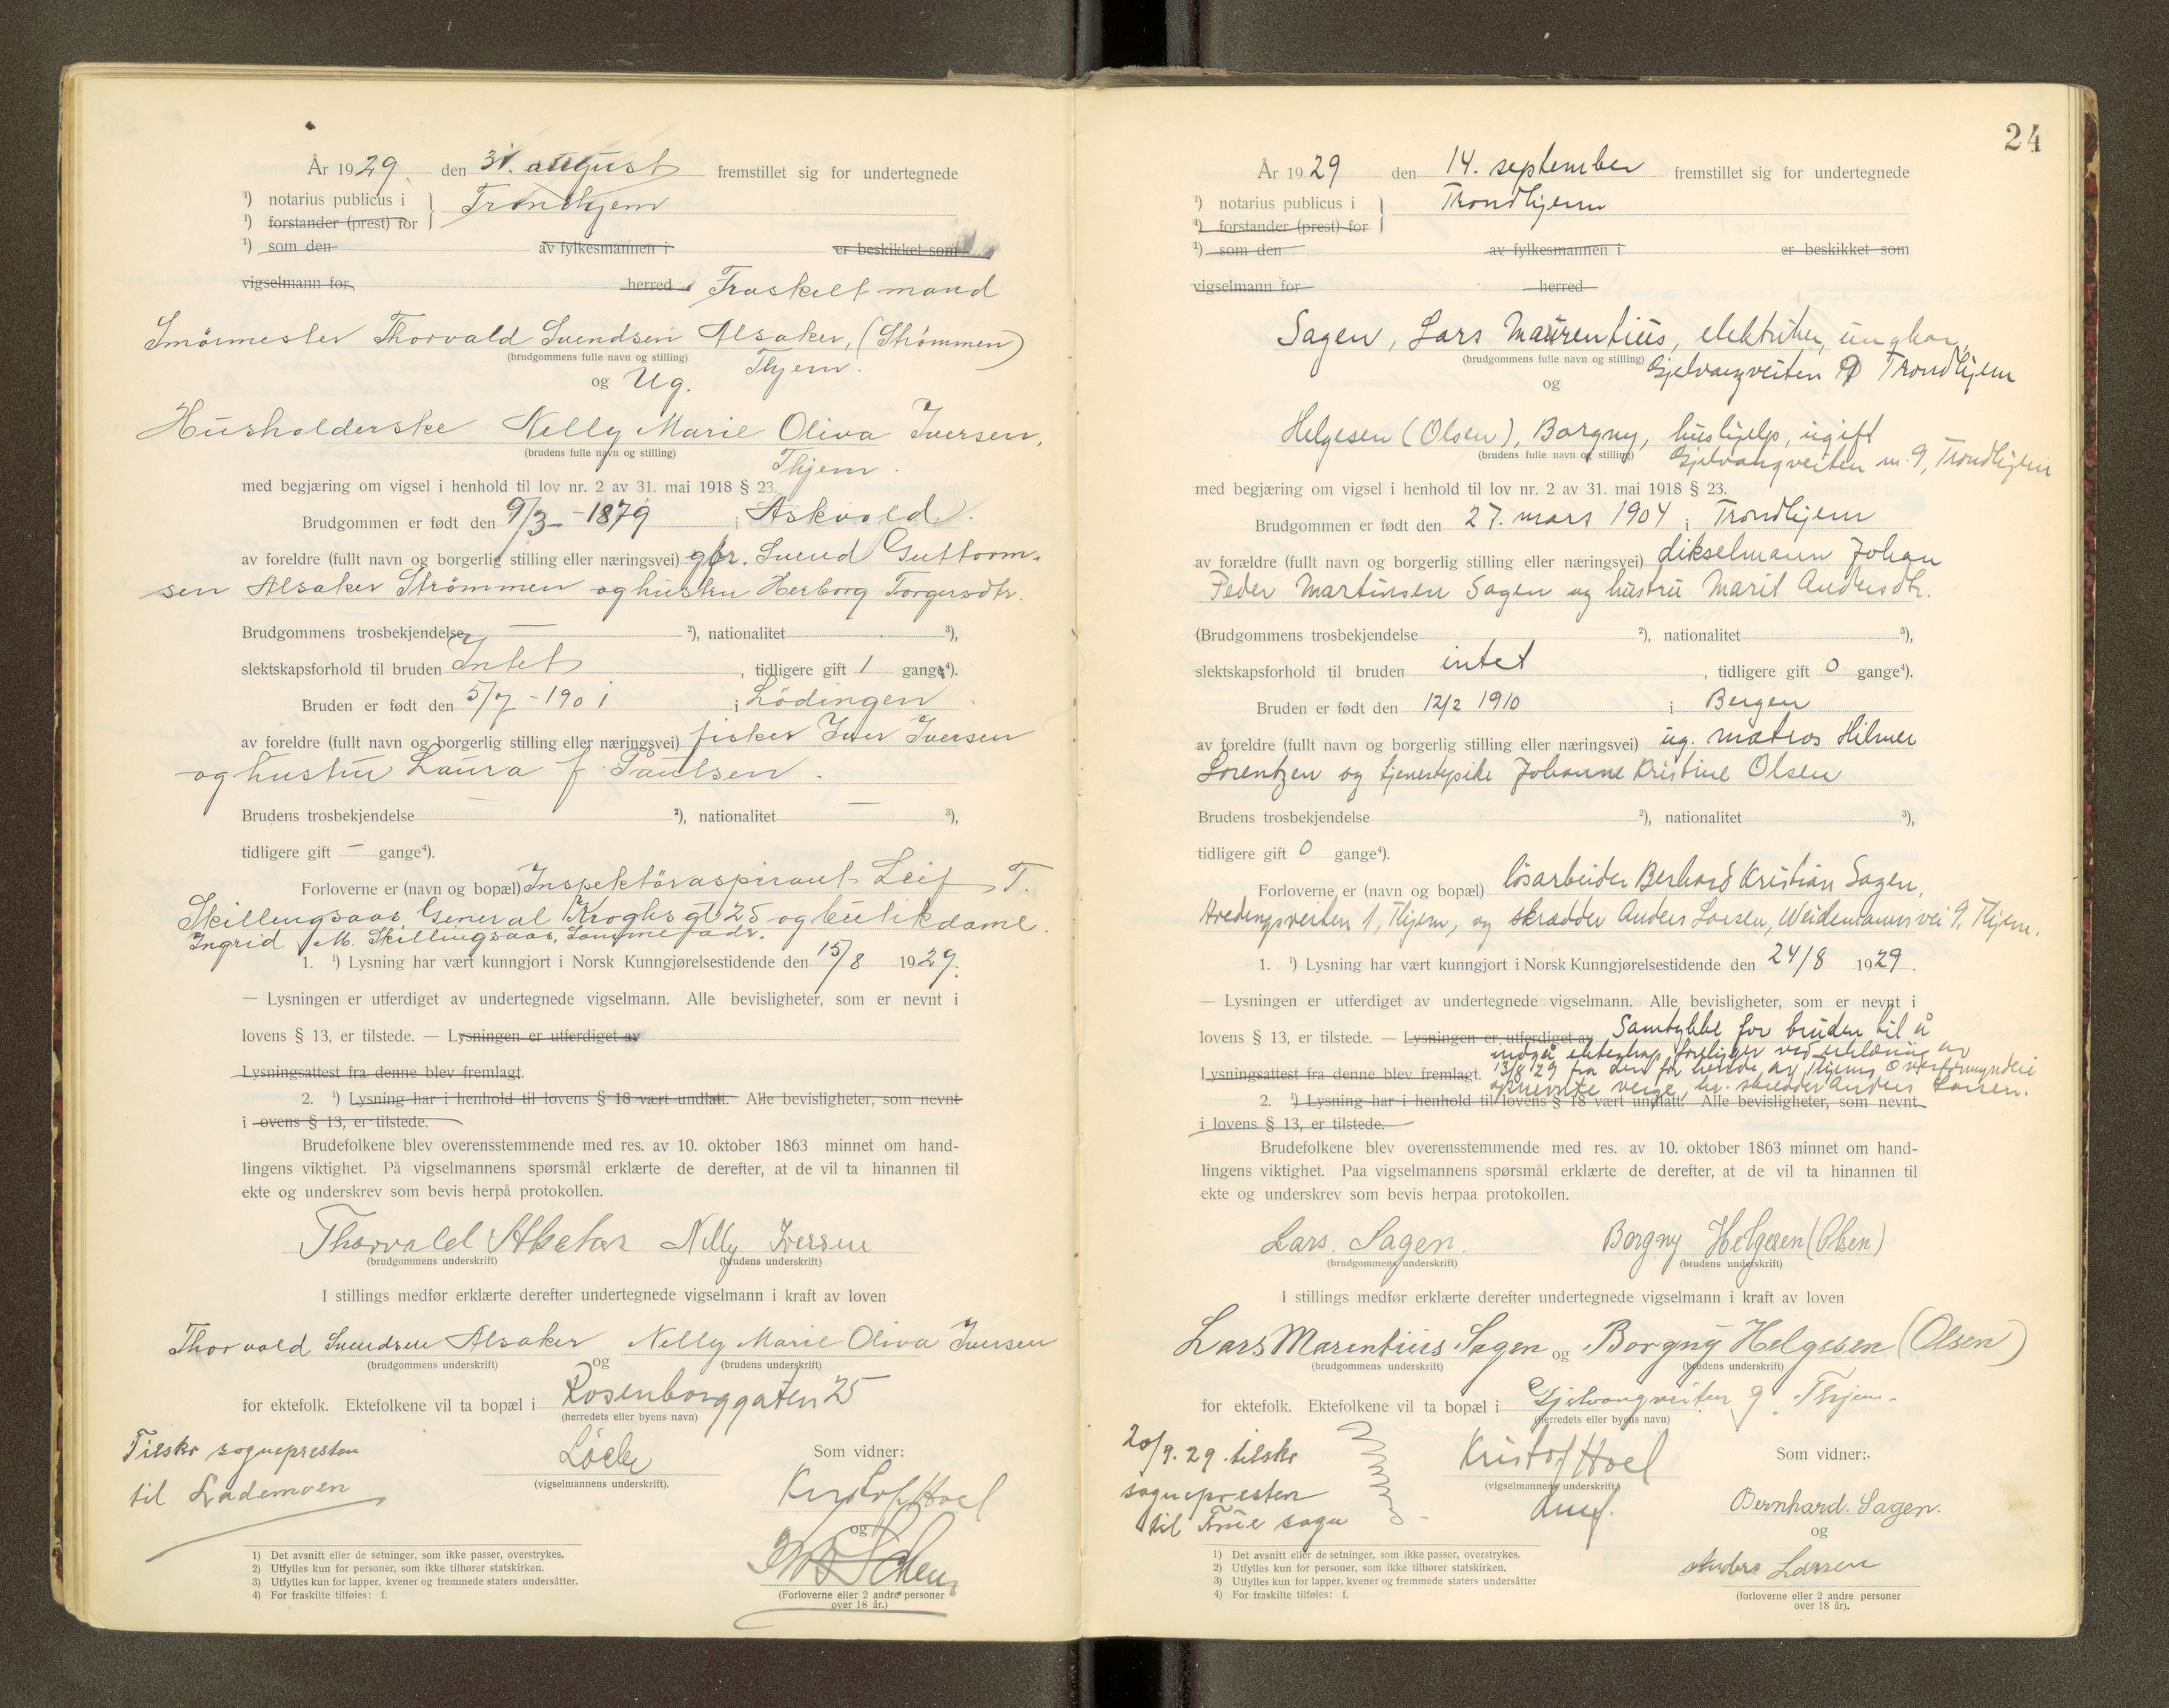 År 1929. den 31. august fremstillet sig for undertegnede
¹) notarius publicus i } Trondhjem
¹) forstander (prest) for
¹) som den av fylkesmannen i er beskikket som
vigselmann for herred Fraskelt mand
Smörmester Thorvald Svendsen Alsaker, (Strömmen)
(brudgommens fulle navn og stilling) Thjem.
og Ug.
Husholderske Nelly Marie Oliva Iversen,
(brudens fulle navn og stilling) Thjem.
med begjæring om vigsel i henhold til lov nr. 2 av 31. mai 1918 § 23.
Brudgommen er født den 9/3 - 1879 i Askvold.
av foreldre (fullt navn og borgerlig stilling eller næringsvei) gbr. Svend Guttorm-
sen Alsaker Strömmen og hustru Herborg Torgersdtr.
Brudgommens trosbekjendelse — ²), nationalitet ³),
slektskapsforhold til bruden Intet , tidligere gift 1 gange⁴).
Bruden er født den 5/7 - 1901 i Lödingen
av foreldre (fullt navn og borgerlig stilling eller næringsvei) fisker Iver Iversen
og hustru Laura f. Paulsen.
Brudens trosbekjendelse — ²), nationalitet — ³),
tidligere gift — gange⁴).
Forloverne er (navn og bopæl) Inspektöraspirant Leif T.
Skillingsaas General Kroghs gt 25 og butikdame
Ingrid M. Skillingsaas, sammesteds.
1. ¹) Lysning har vært kunngjort i Norsk Kunngjørelsestidende den 15/8 1929.
— Lysningen er utferdiget av undertegnede vigselmann. Alle bevisligheter, som er nevnt i
lovens § 13, er tilstede. — Lysningen er utferdiget av
Lysningsattest fra denne blev fremlagt.
2. ¹) Lysning har i henhold til lovens § 18 vært undlatt. Alle bevisligheter, som nevnt
i ovens § 13, er tilstede.
Brudefolkene blev overensstemmende med res. av 10. oktober 1863 minnet om hand-
lingens viktighet. På vigselmannens spørsmål erklærte de derefter, at de vil ta hinannen til
ekte og underskrev som bevis herpå protokollen.
Thorvald Alsaker Nelly Iversen
(brudgommens underskrift) (brudens underskrift)
I stillings medfør erklærte derefter undertegnede vigselmann i kraft av loven
Thorvald Svendsen Alsaker og Nelly Marie Oliva Iversen
(brudgommens underskrift) (brudens underskrift)
for ektefolk. Ektefolkene vil ta bopæl i Rosenborggaten 25
(herredets eller byens navn)
Tilskr sognepresten
til Lademoen
(vigselmannens underskrift).
Som vidner:
Kristof Hoel
og
(Forloverne eller 2 andre personer
over 18 år.)
1) Det avsnitt eller de setninger, som ikke passer, overstrykes.
2) Utfylles kun for personer, som ikke tilhører statskirken.
3) Utfylles kun for lapper, kvener og fremmede staters undersåtter.
4) For fraskilte tilføies: f.
24
År 1929 den 14. september fremstillet sig for undertegnede
¹) notarius publicus i } Trondhjem
¹) forstander (prest) for
¹) som den av fylkesmannen i er beskikket som
vigselmann for herred
Sagen, Lars Maurentius, elektriker, ungkar,
(brudgommens fulle navn og stilling) Gjelvangveiten 9 Trondhjem
og
Helgesen (Olsen), Borgny, hushjelp, ugift
(brudens fulle navn og stilling) Gjelvangveiten nr. 9, Trondhjem
med begjæring om vigsel i henhold til lov nr. 2 av 31. mai 1918 § 23.
Brudgommen er født den 27. mars 1904 i Trondhjem
av forældre (fullt navn og borgerlig stilling eller næringsvei) dikselmann Johan
Peder Martinsen Sagen og hustru Marit Andersdtr.
(Brudgommens trosbekjendelse ²), nationalitet ³),
slektskapsforhold til bruden intet , tidligere gift 0 gange⁴).
Bruden er født den 12/2 1910 i Bergen
av foreldre (fullt navn og borgerlig stilling eller næringsvei) ug. matros Hilmer
Lorentzen og tjenestepike Johanne Kristine Olsen
Brudens trosbekjendelse ²), nationalitet ³),
tidligere gift 0 gange⁴).
Forloverne er (navn og bopæl) lösarbeider Berhard Kristian Sagen,
Hvedingsveiten 1, Thjem, og skrædder Anders Larsen, Weidemannsvei 9, Thjem.
1. ¹) Lysning har vært kunngjort i Norsk Kunngjørelsestidende den 24/8 1929.
— Lysningen er utferdiget av undertegnede vigselmann. Alle bevisligheter, som er nevnt i
lovens § 13, er tilstede. — Lysningen er utferdiget av Samtykke for bruden til å
indgå ekteskap foreligger ved erklæring av
Lysningsattest fra denne blev fremlagt. 13/8 29 fra den for hende av Thjems Overformynderi
opnevnte verge, hr. skredder Anders Larsen.
2. ¹) Lysning har i henhold til lovens § 18 vært undlatt. Alle bevisligheter, som nevnt
i lovens § 13, er tilstede.
Brudefolkene blev overensstemmende med res. av 10. oktober 1863 minnet om hand-
lingens viktighet. Paa vigselmannens spørsmål erklærte de derefter, at de vil ta hinannen til
ekte og underskrev som bevis herpaa protokollen.
Lars Sagen. Borgny Helgesen (Olsen)
(brudgommens underskrift) (brudens underskrift)
I stillings medfør erklærte derefter undertegnede vigselmann i kraft av loven
Lars Marentius Sagen og Borgny Helgesen (Olsen)
(brudgommens underskrift) (brudens underskrift)
for ektefolk. Ektefolkene vil ta bopæl i Gjelvangveiten 9 Thjem.
(herredets eller byens navn)
20/9. 29. tilskr
sognepresten
til Frue sogn
Kristof Hoel
(vigselmannens underskrift)
Som vidner:
Bernhard. Sagen.
og
Anders Larsen
(forloverne eller 2 andre personer
over 18 år).
1) Det avsnitt eller de setninger, som ikke passer, overstrykes.
2) Utfylles kun for personer, som ikke tilhører statskirken.
3) Utfylles kun for lapper, kvener og fremmede staters undersåtter
4) For fraskilte tilføies: f.